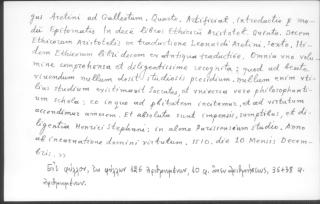 gus Aretini ad Galeotum. Quarto, Artificiat. introductio per mo-
dum Epitomatis In decē libros Ethicorū Aristotel. Quinto. Decem
Ethicorum Aristotelis ex traductione Leonardi Aretini. Sexto, Iti-
dem Ethicorum libri decem ex antiqua traductioe. Omnia uno volu-
mine comprehensa et diligentissime recognita; quod ad beate
vivendum nullum desit studiosis presidium. nullum enim uti-
lius studium existimavit Socrates, et universa vere philosophanti-
um schola; eo inquā ad philosophiam incitamur, et ad virtutum
accendimur amorem. Et absoluta sunt impensis, sumptibus, et di-
ligentia Henrici Stephani; in alma Parisiensium studio. Anno
ab incarnatione domini virtutum. 1510. die 10 Mensis Decem-
bris. »
Εἰς φύλλον, ἐκ φύλλων 126 ἀριθμημένων, 10 φ. ἄνευ ἀριθμήσεως, 36+38 φ.
ἀριθμημένων.